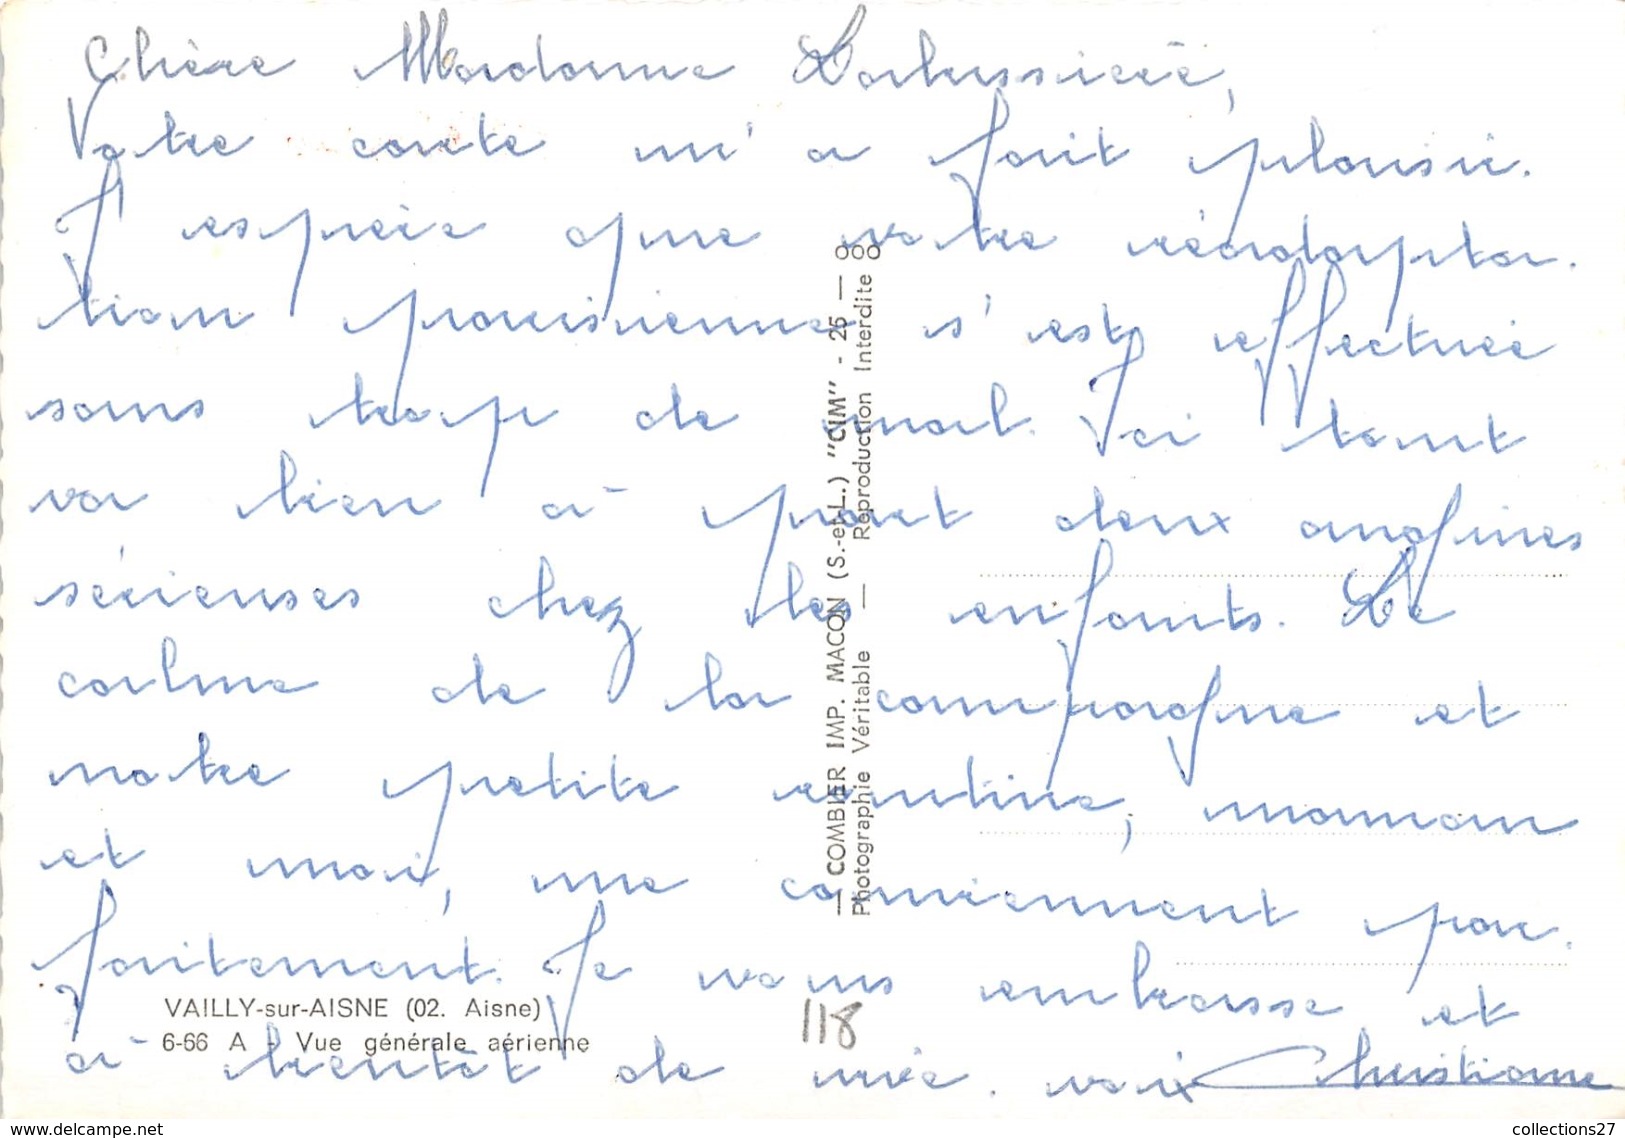 Chère Madame Labussière,
Votre carte m'a fait plaisir.
J'espère que votre réadapta.
tion parisienne s'est effectuée
sans trop de mal. Ici tout
va bien à part deux angines
sérieuses chez les enfants. Le
calme de la campagne et
notre petite routine, maman
et moi, me conviennent par.
faitement. Je vous embrasse et
à bientôt de vive. voix Christiane
— COMBIER IMP. MACON (S.-et-L.) "CIM" - 25 —
Photographie Véritable — Reproduction Interdite
VAILLY-sur-AISNE (02. Aisne)
6-66 A - Vue générale aérienne
118
https://www.delcampe.net
collections27